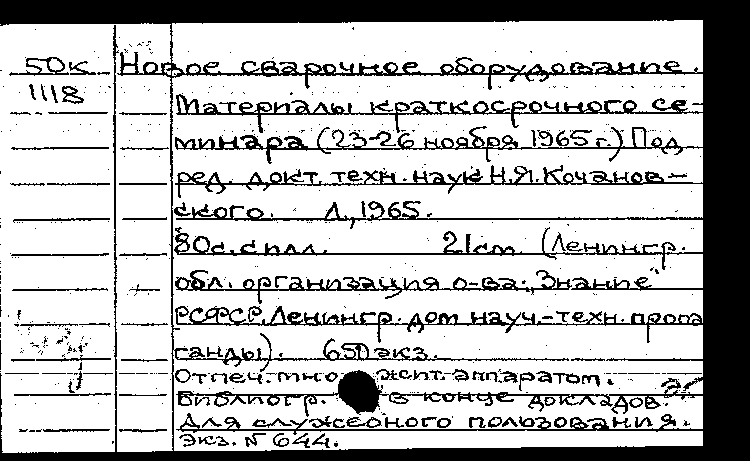 50к Новое сварочное оборудование.
1118
Материалы краткосрочного се-
минара (23-26 ноября 1965 г.) Под
ред. докт. техн. наук Н.Я. Кочанов-
ского. Л., 1965.
80с. с илл. 21см (Ленингр.
обл. организация о-ва "Знание"
РСФСР. Ленингр. дом науч.-техн. пропа
ганды). 650 экз.
Отпеч. аппаратом.
Библиогр. в конце докладов.
Для служебного пользования.
Экз. № 644.